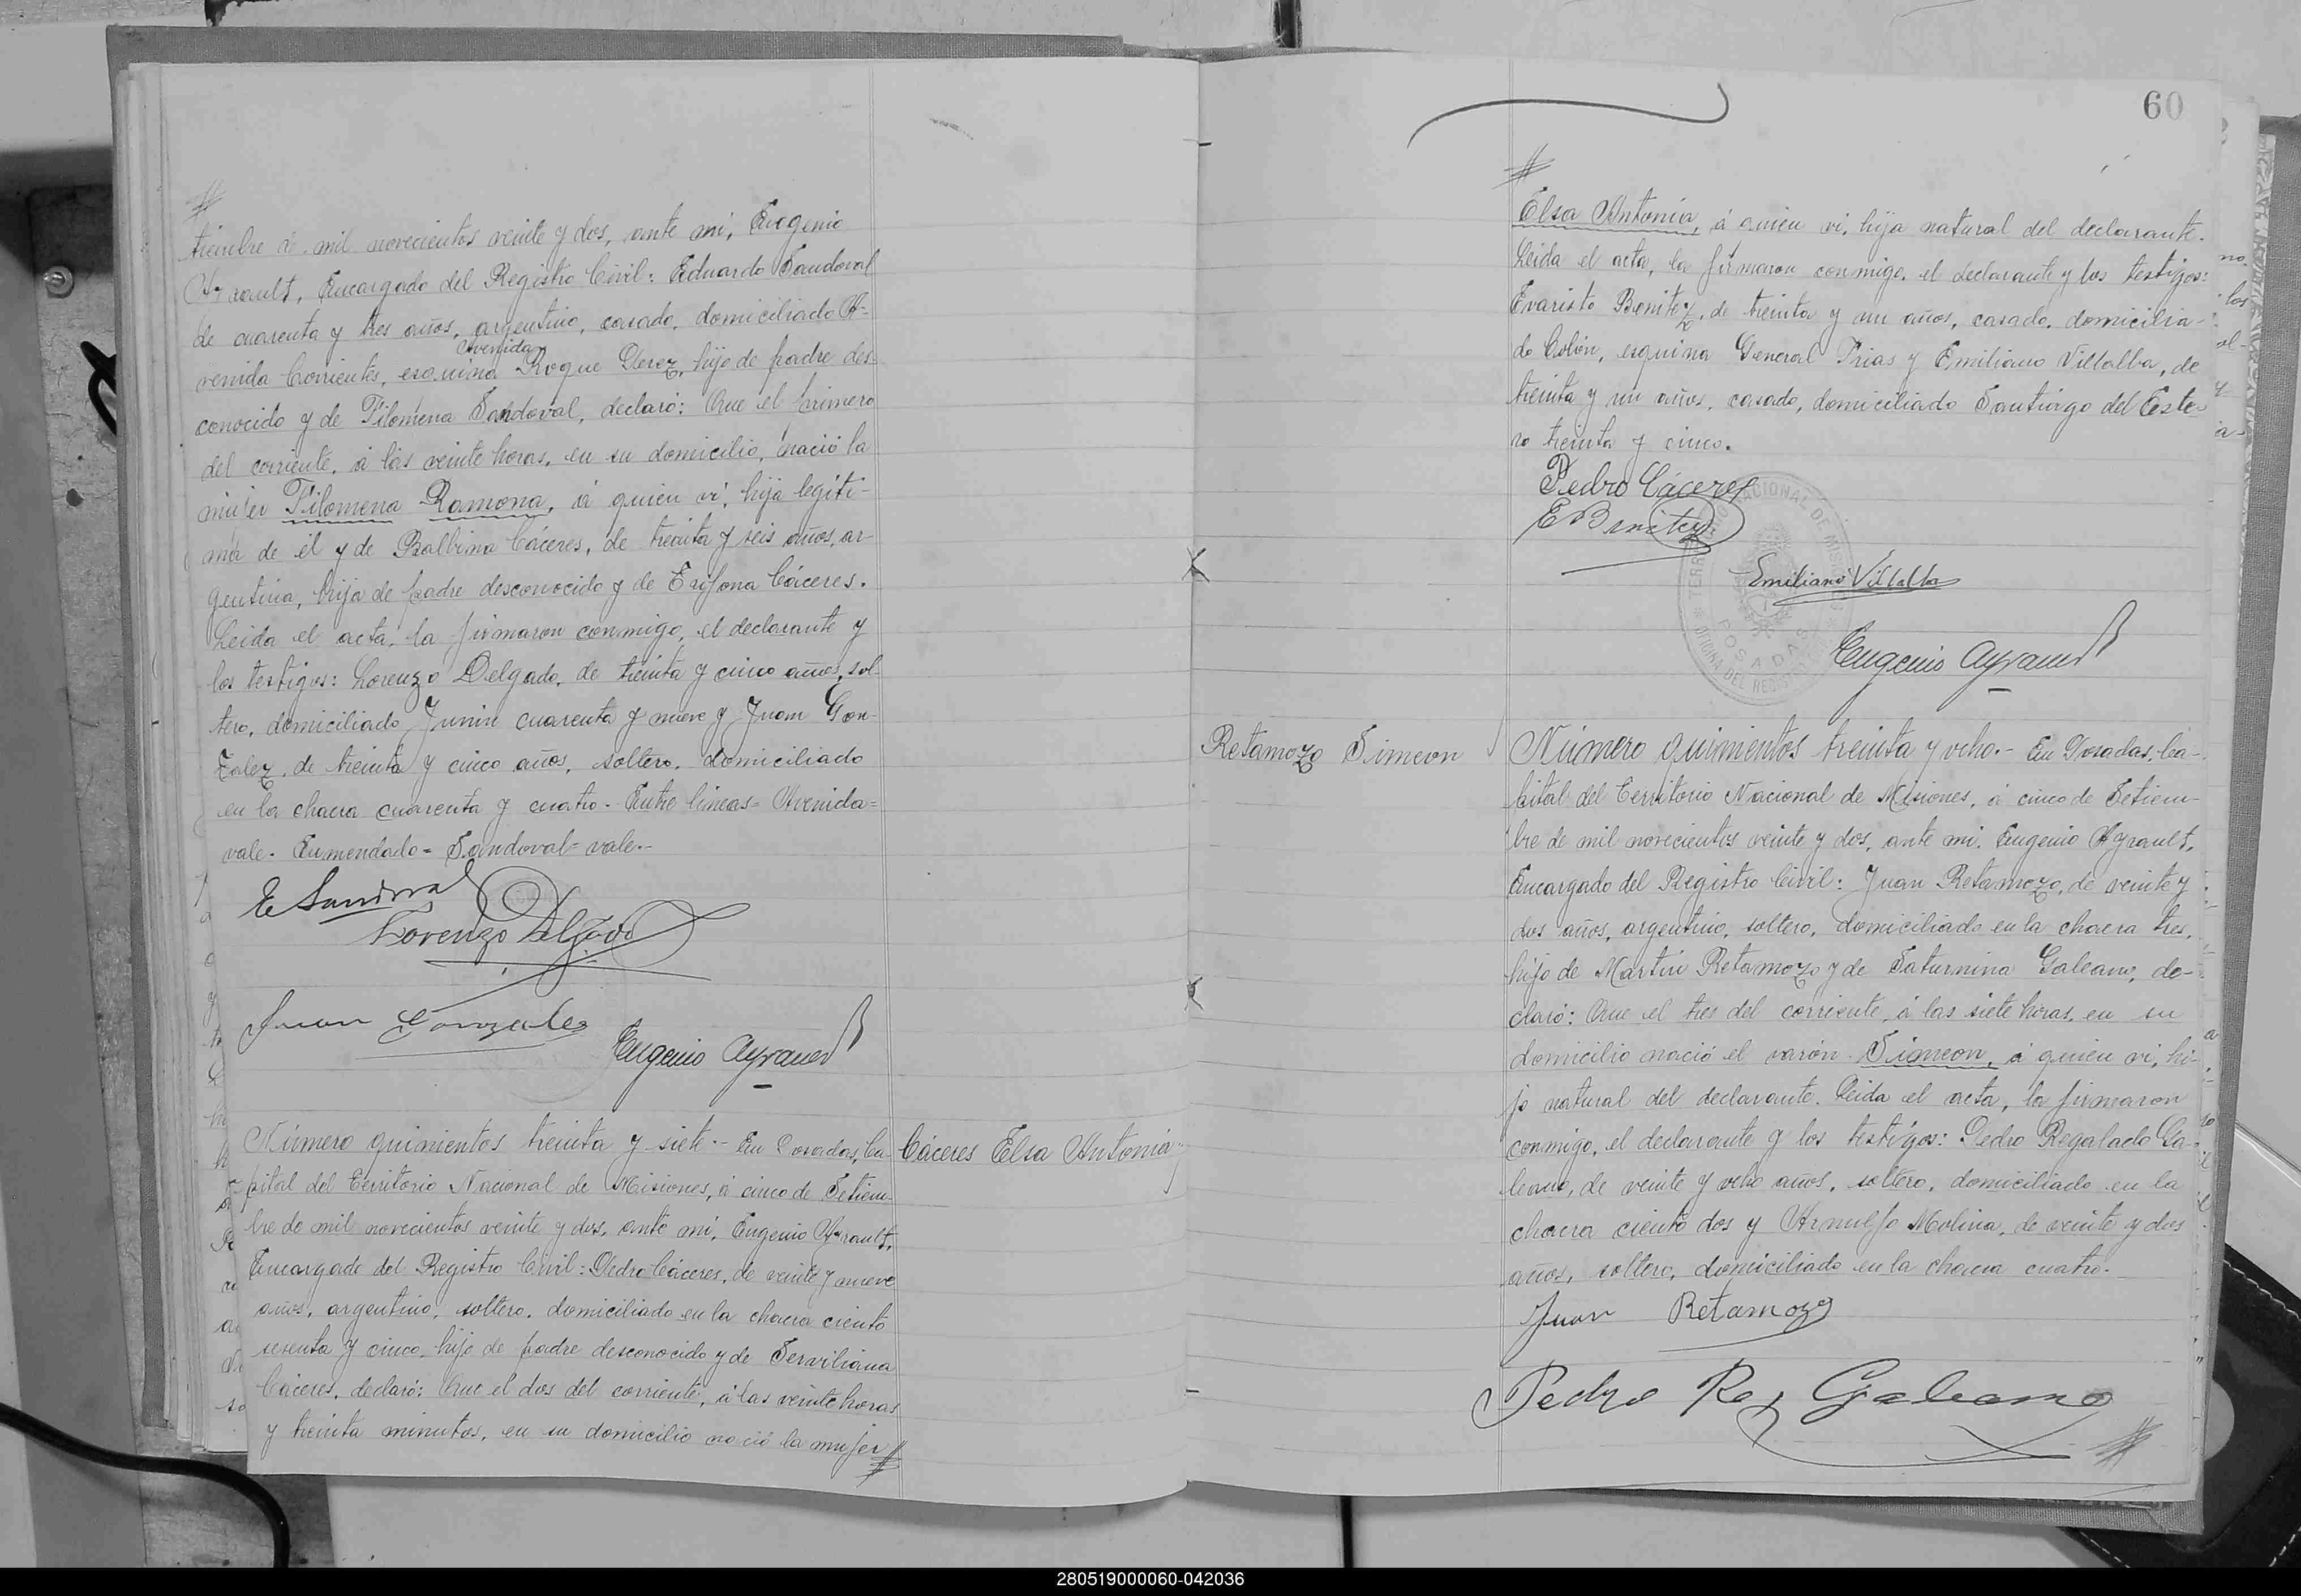 tiembre de mil novecientos veinte y dos, ante mi, Eugenio
Ayrault, Encargado del Registro Civil: Eduardo Sandoval
de cuarenta y tres años, argentino, casado, domiciliado A-
Avenida
venida Corrientes, esquina Roque Perez, hijo de padre des-
conocido y de Filomena Sandoval, declaró: Que el primero
del corriente, á las veinte horas, en su domicilio, nació la
mujer Filomena Ramona, á quien vi, hija legiti-
ma de él y de Balbina Cáceres, de treinta y seis años, ar-
gentina, hija de padre desconocido y de Cáceres.
Leida el acta, la firmaron conmigo, el declarante y
los testigos: Lorenzo Delgado, de treinta y cinco años, sol-
tero, domiciliado Junin cuarenta y nueve y Juan Gon-
zalez, de treinta y cinco años, soltero, domiciliado
en la chacra cuarenta y cuatro.- Entre lineas= Avenida=
vale. Enmendado= Sandoval= vale.-
E Sandoval
Lorenzo Delgado
Juan Gonzalez
Eugenio Ayrault
Número quinientos treinta y siete.- En Posadas, Ca-
Cáceres Elsa Antonia
pital del Territorio Nacional de Misiones, á cinco de Setiem-
bre de mil novecientos veinte y dos, ante mi, Eugenio Ayrault,
Encargado del Registro Civil: Pedro Cáceres, de veinte y nueve
años, argentino, soltero, domiciliado en la chacra ciento
sesenta y cinco, hijo de padre desconocido y de Serviliana
Cáceres, declaró: Que el dos del corriente, á las veinte horas
y treinta minutos, en su domicilio nació la mujer
60
Elsa Antonia, á quien vi, hija natural del declarante.
Leida el acta, la firmaron conmigo, el declarante y los testigos:
Evaristo Benitez, de treinta y un años, casado, domicilia-
do Colón, esquina General Frias y Emiliano Villalba, de
treinta y un años, casado, domiciliado Santiago del Este-
ro treinta y cinco.
Pedro Cáceres
E Benitez
Emiliano Villalba
Eugenio Ayrault
Retamozo Simeon
Número quinientos treinta y ocho.- En Posadas, Ca-
pital del Territorio Nacional de Misiones, á cinco de Setiem-
bre de mil novecientos veinte y dos, ante mi, Eugenio Ayrault,
Encargado del Registro Civil: Juan Retamozo, de veinte y
dos años, argentino, soltero, domiciliado en la chacra tres,
hijo de Martin Retamozo y de Saturnina Galeano, de-
claró: Que el tres del corriente, á las siete horas, en su
domicilio nació el varón Simeon, á quien vi, hi-
jo natural del declarante. Leida el acta, la firmaron
conmigo, el declarante y los testigos: Pedro Regalado Ga-
leano, de veinte y ocho años, soltero, domiciliado en la
chacra ciento dos y Arnulfo Molina, de veinte y dos
años, soltero, domiciliado en la chacra cuatro.-
Juan Retamozo
Pedro Reg Galeano
280519000060-042036